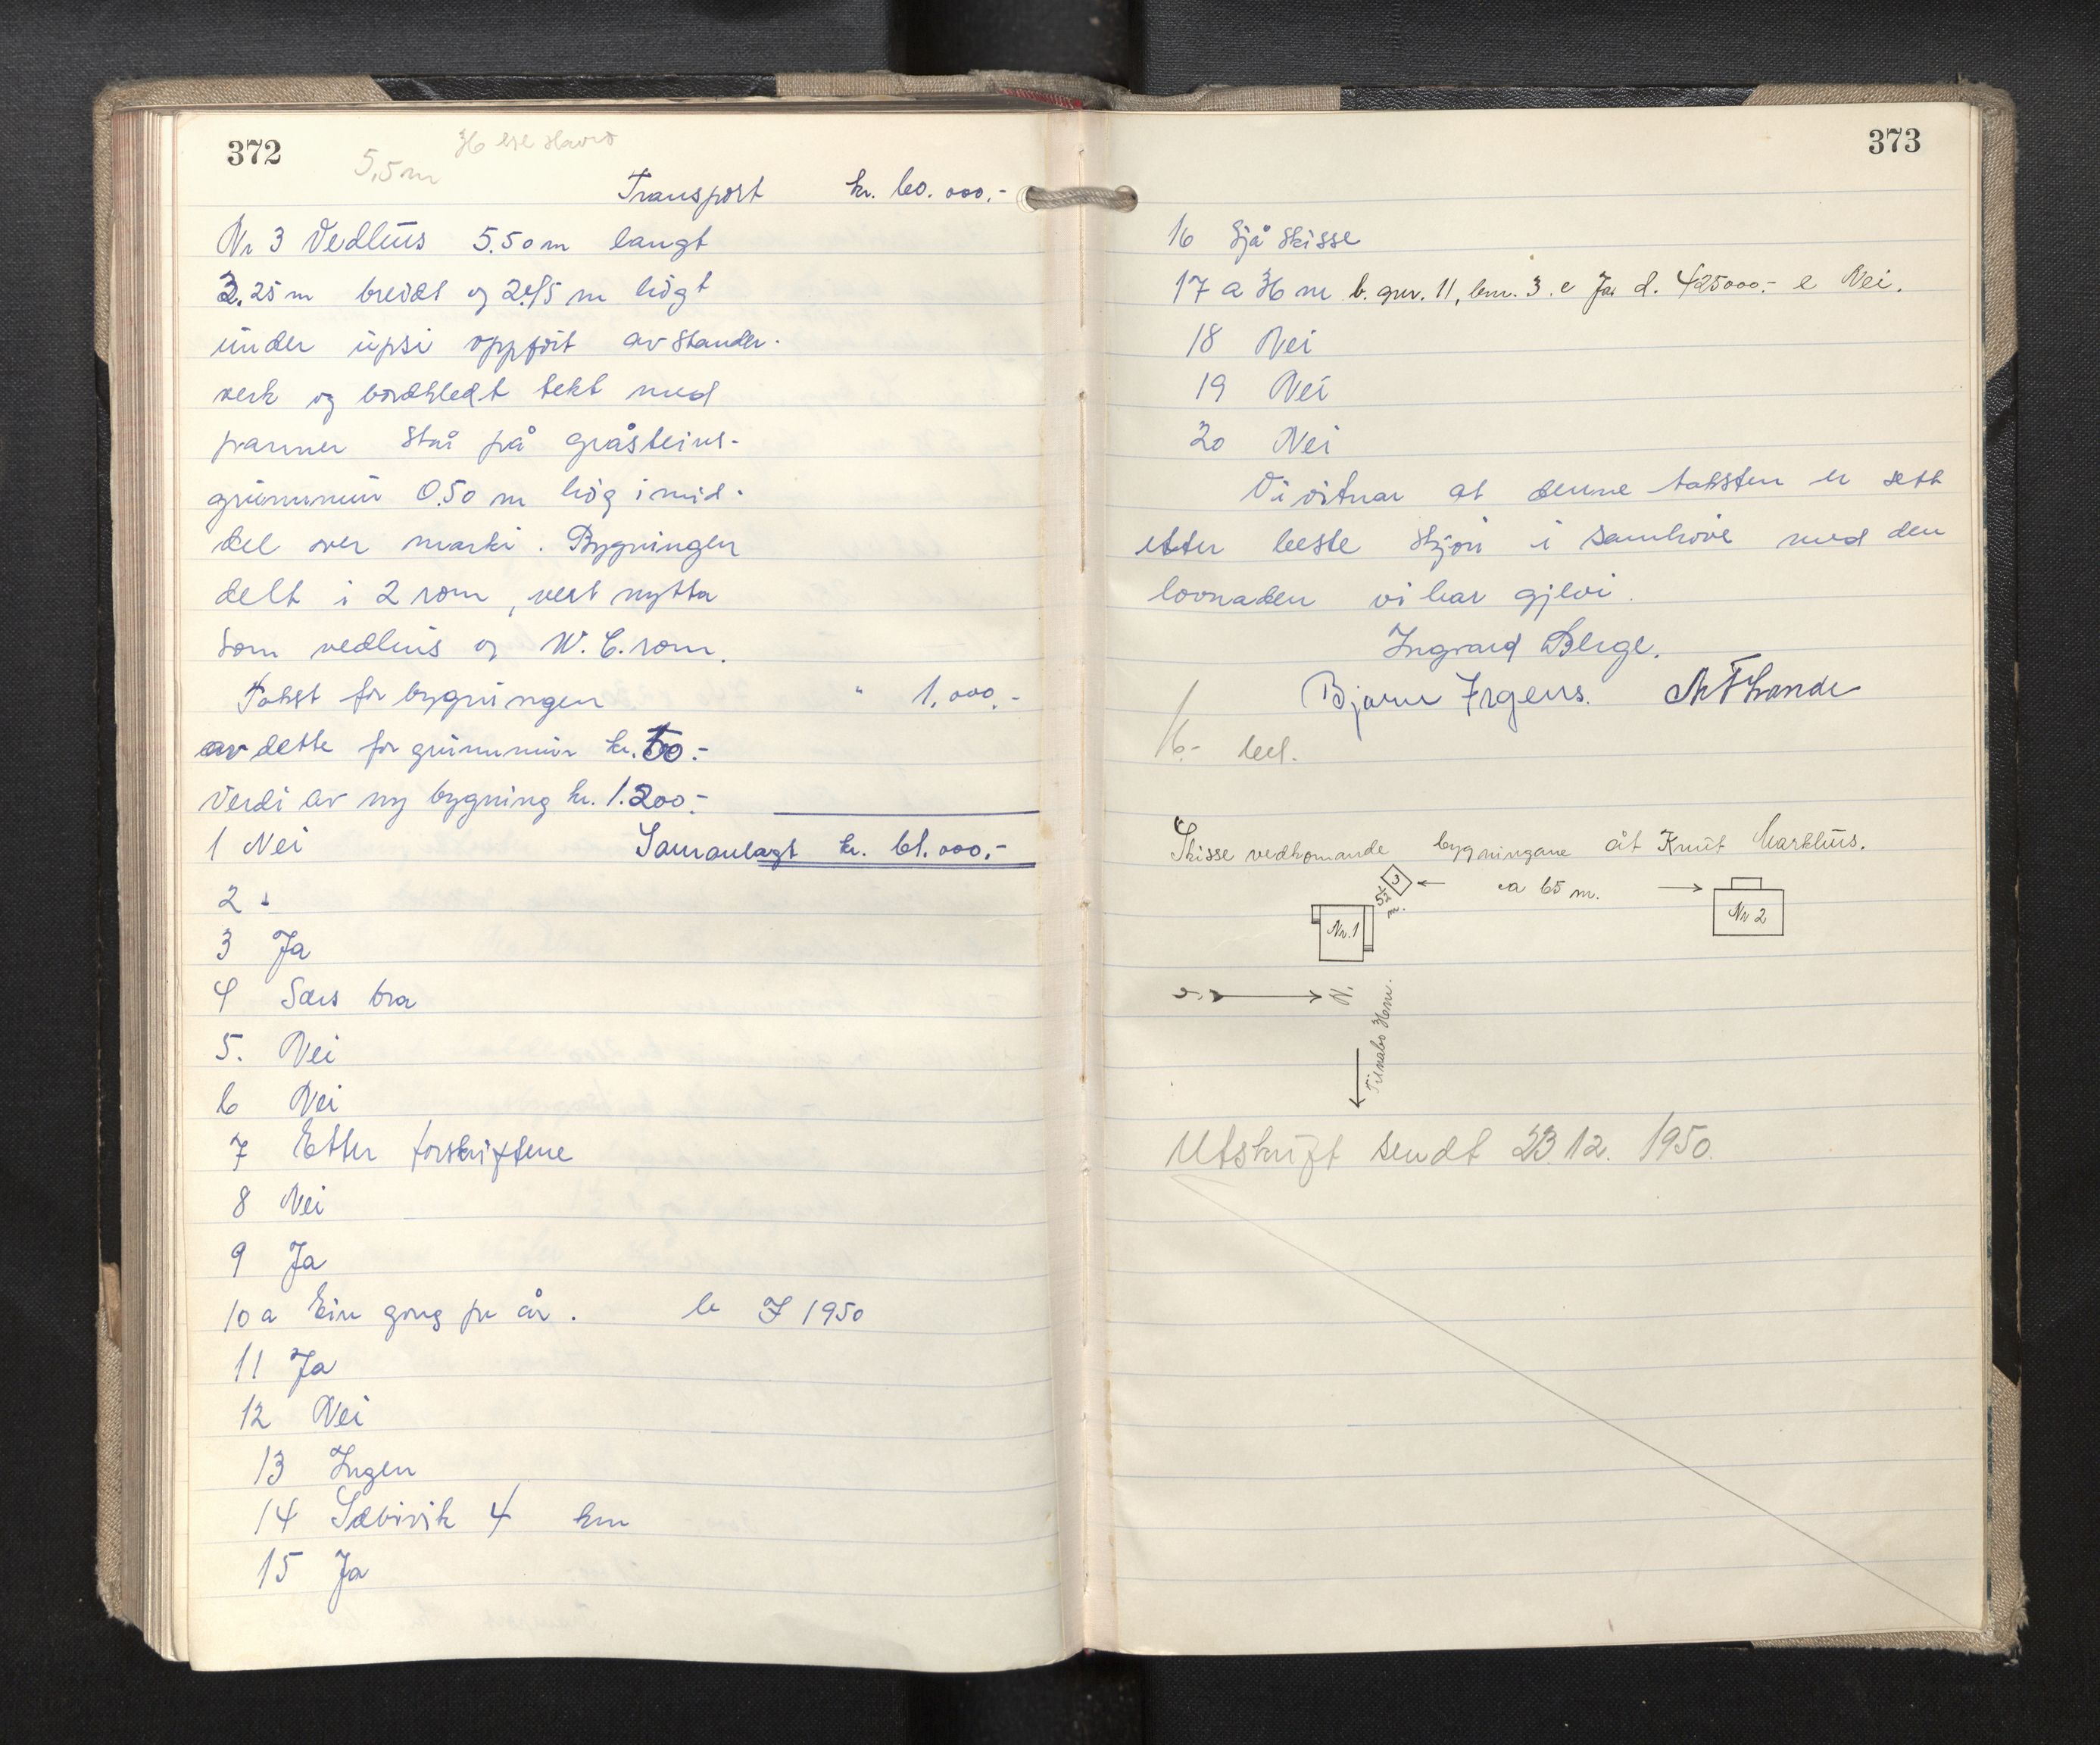 372
5,5 m
Transport kr. 60.000.-
Nr 3 Vedhus 5.50 m langt
3.25 m breidt og 2.45 m högt
under upsi oppfört av stender-
verk og bordkledt tekt med
panner Står på gråsteins-
grunnmur 0.50 m hög i mid-
del over marki. Bygningen
delt i 2 rom, vert nytta
som vedhus og W.C. rom.
Takst for bygningen " 1.000.-
av dette for grunnmur kr. 50.-
Verdi av ny bygning kr. 1.200.-
1 Nei Samanlagt kr. 61.000.-
2 "
3 Ja
4 Særs bra
5. Nei
6 Nei
7 Etter forskriftene
8 Nei
9 Ja
10 a Ein gong pr år. b I 1950
11 Ja
12 Nei
13 Ingen
14 Sæbivik 4 km
15 Ja
373
16 Sjå Skisse
17 a 36 m b. gnr. 11, bnr. 3. c Ja d. 425000.- e Nei.
18 Nei
19 Nei
20 Nei
Vi vitnar at denne taksten er sett
etter beste skjön i samhöve med den
lovnaden vi har gjevi.
Ingvard Berge.
Bjarne Irgens.
16.- bet.
Skisse vedkomande bygningane åt Knut Markhus.
3 ca 65 m.
Nr. 1 Nr 2
N.
Til nabo 36 m.
Utskrift sendt 23.12. 1950.